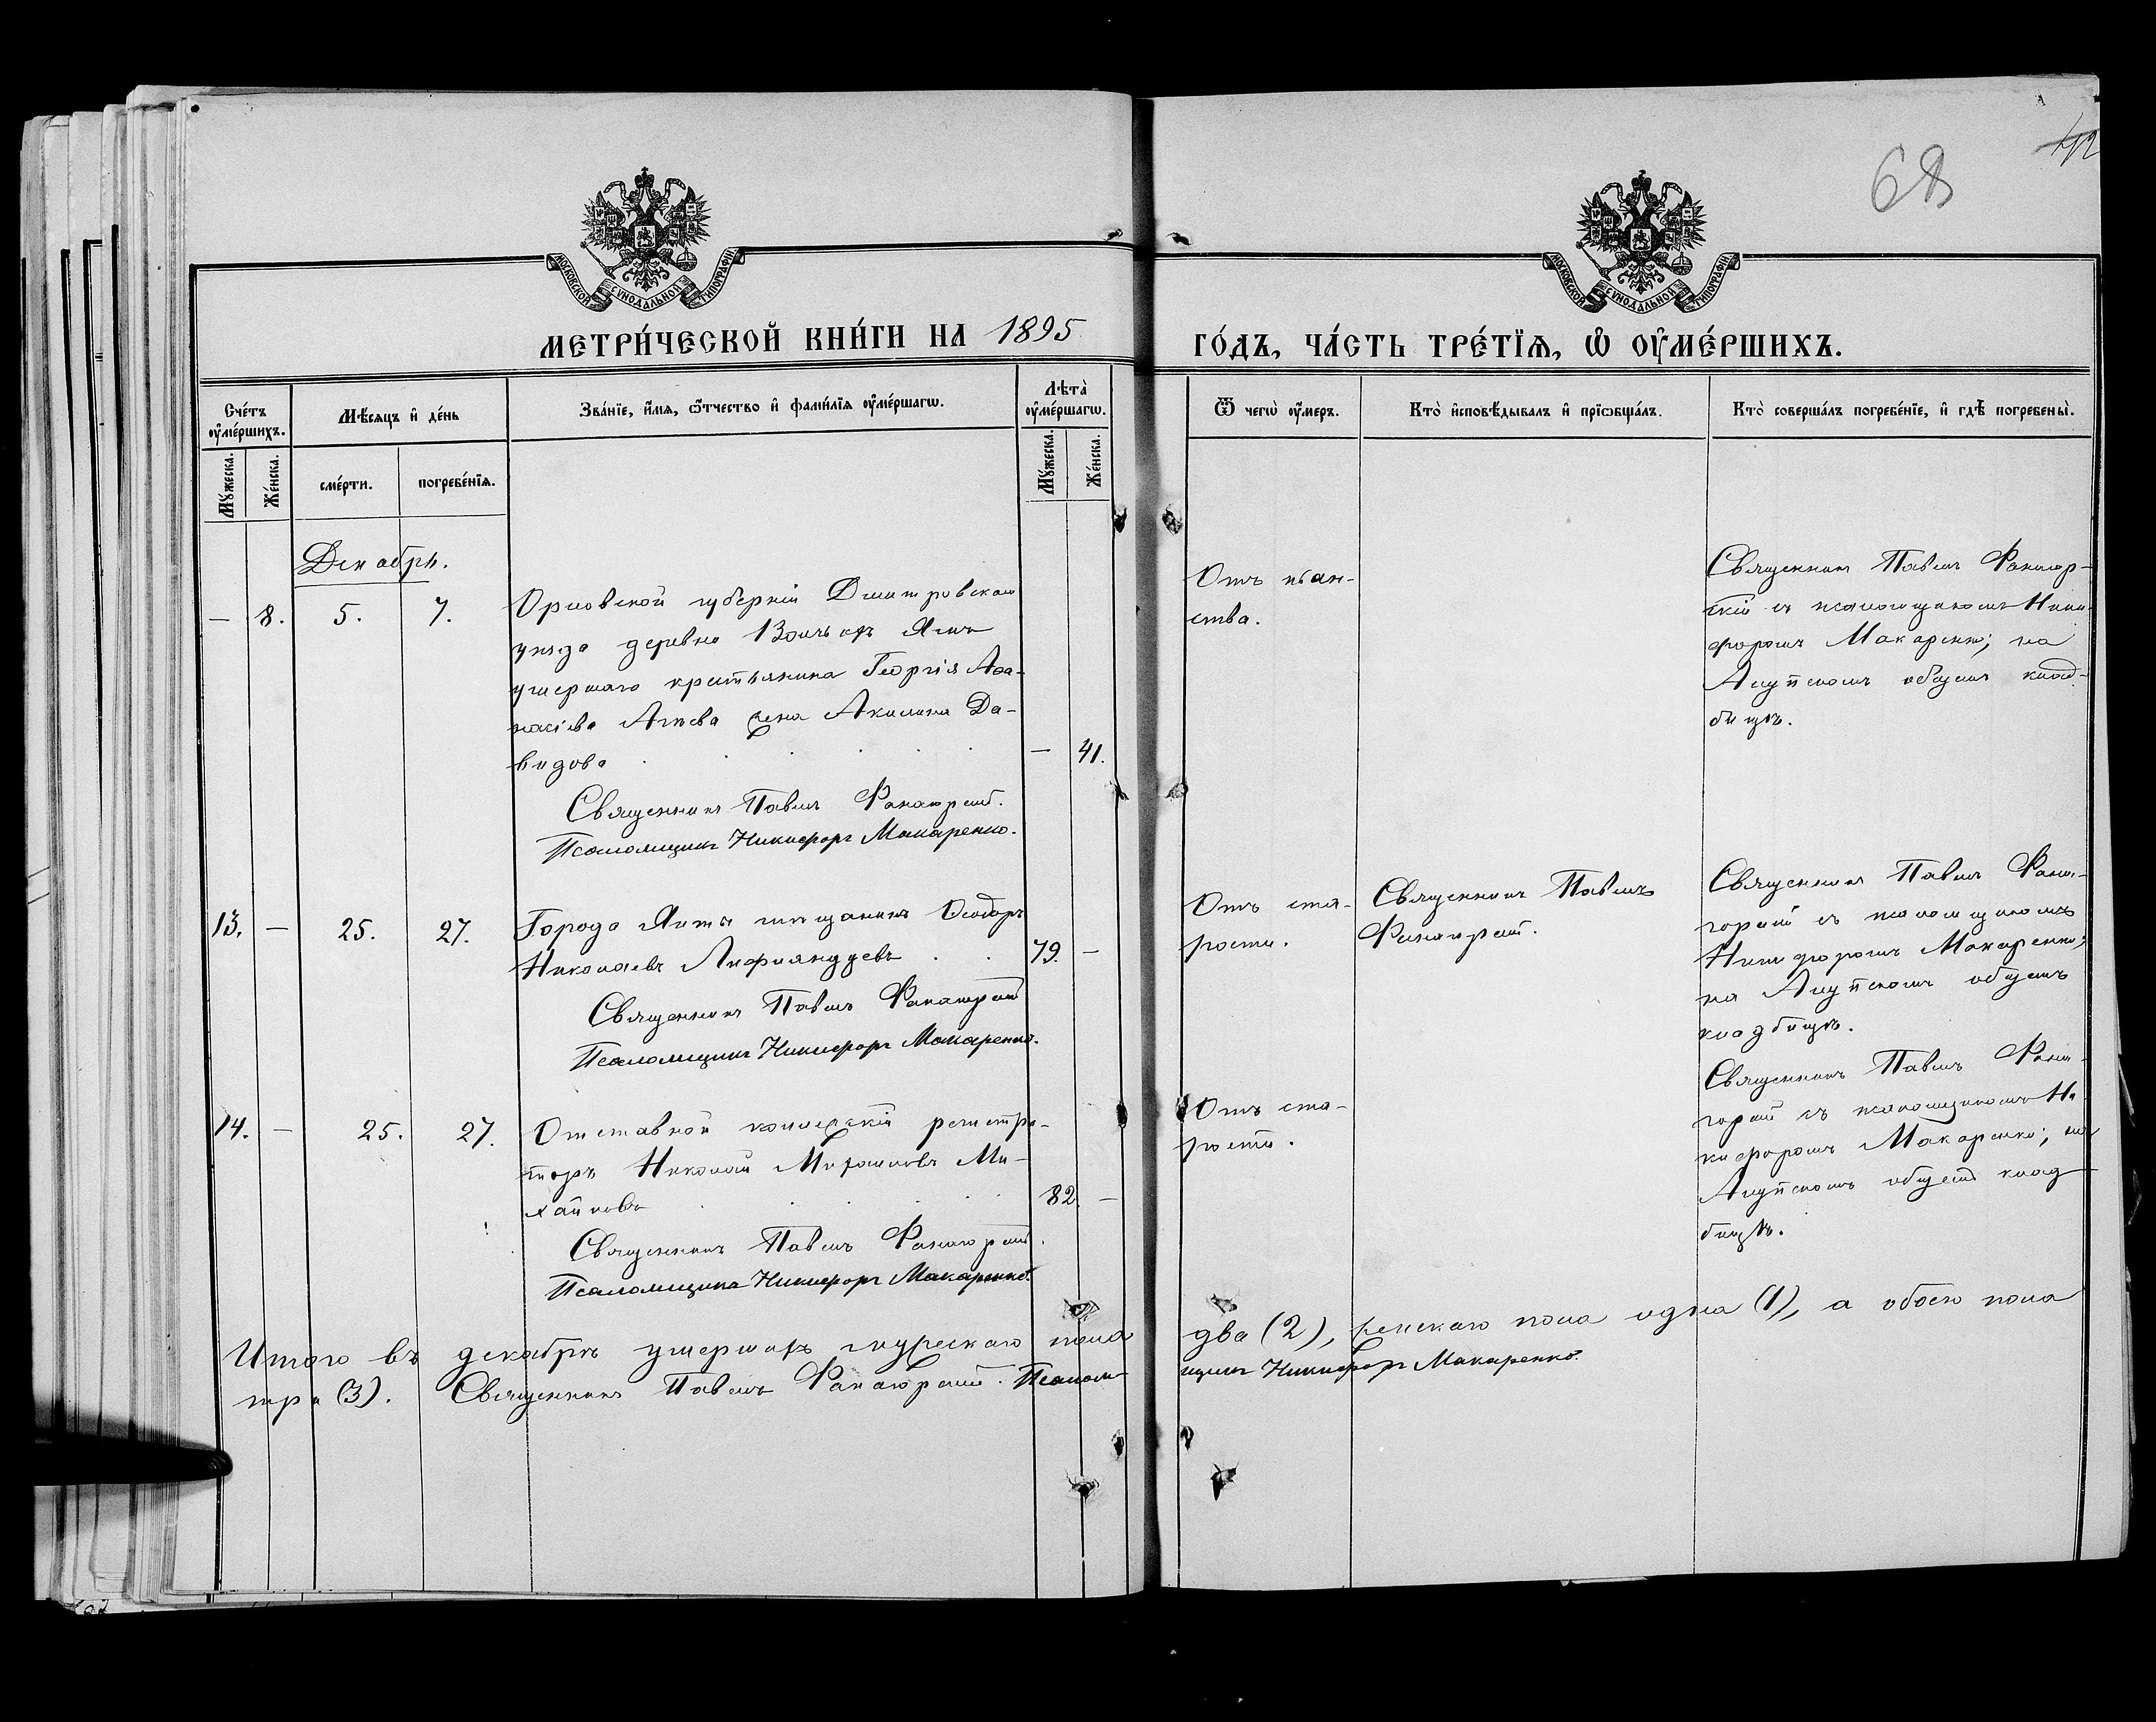 68
МОСКОВСКОЙ СѴНОДАЛЬНОЙ ТИПОГРАФІИ
МОСКОВСКОЙ СѴНОДАЛЬНОЙ ТИПОГРАФІИ
МЕТРИ́ЧЕСКОЙ КНИ́ГИ НА 1895 ГО́ДЪ, ЧА́СТЬ ТРЕ́ТЇѦ, Ѡ҆ ОУ҆МЕ́РШИХЪ.
Сче́тъ оу҆ме́ршихъ.
Мѣ́сяцъ и҆ де́нь
Зва́нїе, и҆́мя, ѻ҆́тчество и҆ фами́лїя оу҆ме́ршагѡ.
Лѣ́та оу҆ме́ршагѡ.
Ѿ чегѡ̀ оу҆́меръ.
Кто̀ и҆сповѣ́дывалъ и҆ прїѡбща́лъ.
Кто̀ соверша́лъ погребе́нїе, и҆ гдѣ̀ погребены̀.
Мꙋ́жеска.
Же́нска.
сме́рти.
погребе́нїя.
Мꙋ́жеска.
Же́нска.
Декабрь.
— 8. 5. 7.
Орловской губерніи Дмитровскаго
уѣзда деревни
умершаго крестьянина Георгія Аѳа-
насіева жена Акилина Да-
видова — 41.
Священникъ Павелъ Фанагорскій.
Псаломщикъ Никифоръ Макаренко.
Отъ пьян-
ства.
Священникъ Павелъ Фанагор-
скій съ псаломщикомъ Ники-
форомъ Макаренко; на
Алупскомъ общемъ клад-
бищѣ.
13. — 25. 27.
Города Ялты мѣщанинъ Ѳеодоръ
Николаевъ Лифляндцевъ 79. —
Священникъ Павелъ Фанагорскій
Псаломщикъ Никифоръ Макаренко.
Отъ ста-
рости.
Священникъ Павелъ
Фанагорскій.
Священникъ Павелъ Фана-
горскій съ псаломщикомъ
Никифоромъ Макаренко;
на Алупскомъ общемъ
кладбищѣ.
14. — 25. 27.
Отставной коллежскій регистра-
торъ Николай Михайловъ Ми-
хайловъ 82. —
Священникъ Павелъ Фанагорскій.
Псаломщикъ Никифоръ Макаренко.
Отъ ста-
рости.
Священникъ Павелъ Фана-
горскій съ псаломщикомъ Ни-
кифоромъ Макаренко; на
Алупскомъ общемъ клад
бищѣ.
Итого въ декабрѣ умершихъ мужескаго пола два (2), женскаго пола одна (1), а обоего пола
три (3). Священникъ Павелъ Фанагорскій. Псалом-щикъ Никифоръ Макаренко.